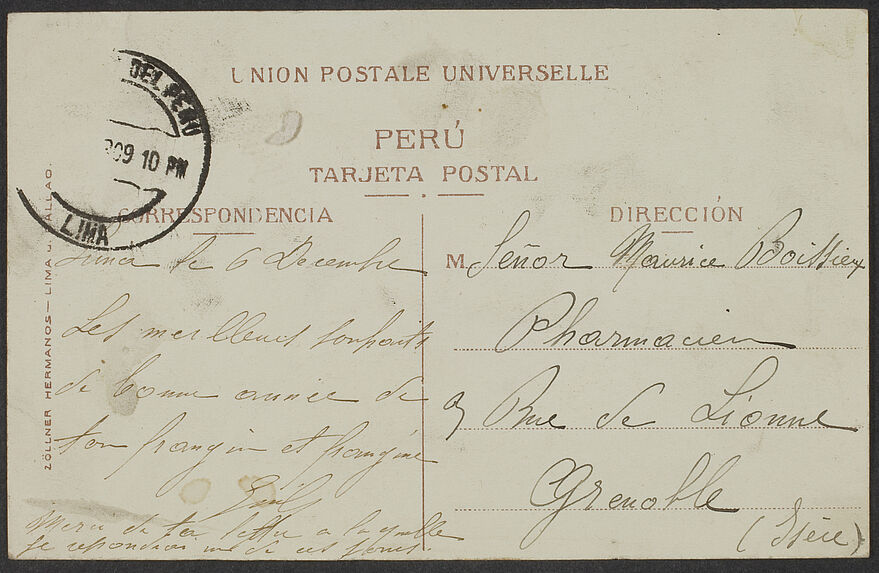 UNION POSTALE UNIVERSELLE
PERÚ
TARJETA POSTAL
DEL PERU
909 10 PM
LIMA
CORRESPONDENCIA
Lima le 6 Decembre
Les meilleurs souhaits
de bonne année de
ton frangin et frangine
Merci de ta lettre a laquelle
je repondrai un de ces jours.
DIRECCIÓN
M. Señor Maurice Boissieux
Pharmacien
9 Rue de Lionne
Grenoble
(Isère)
ZÖLLNER HERMANOS — LIMA CALLAO.